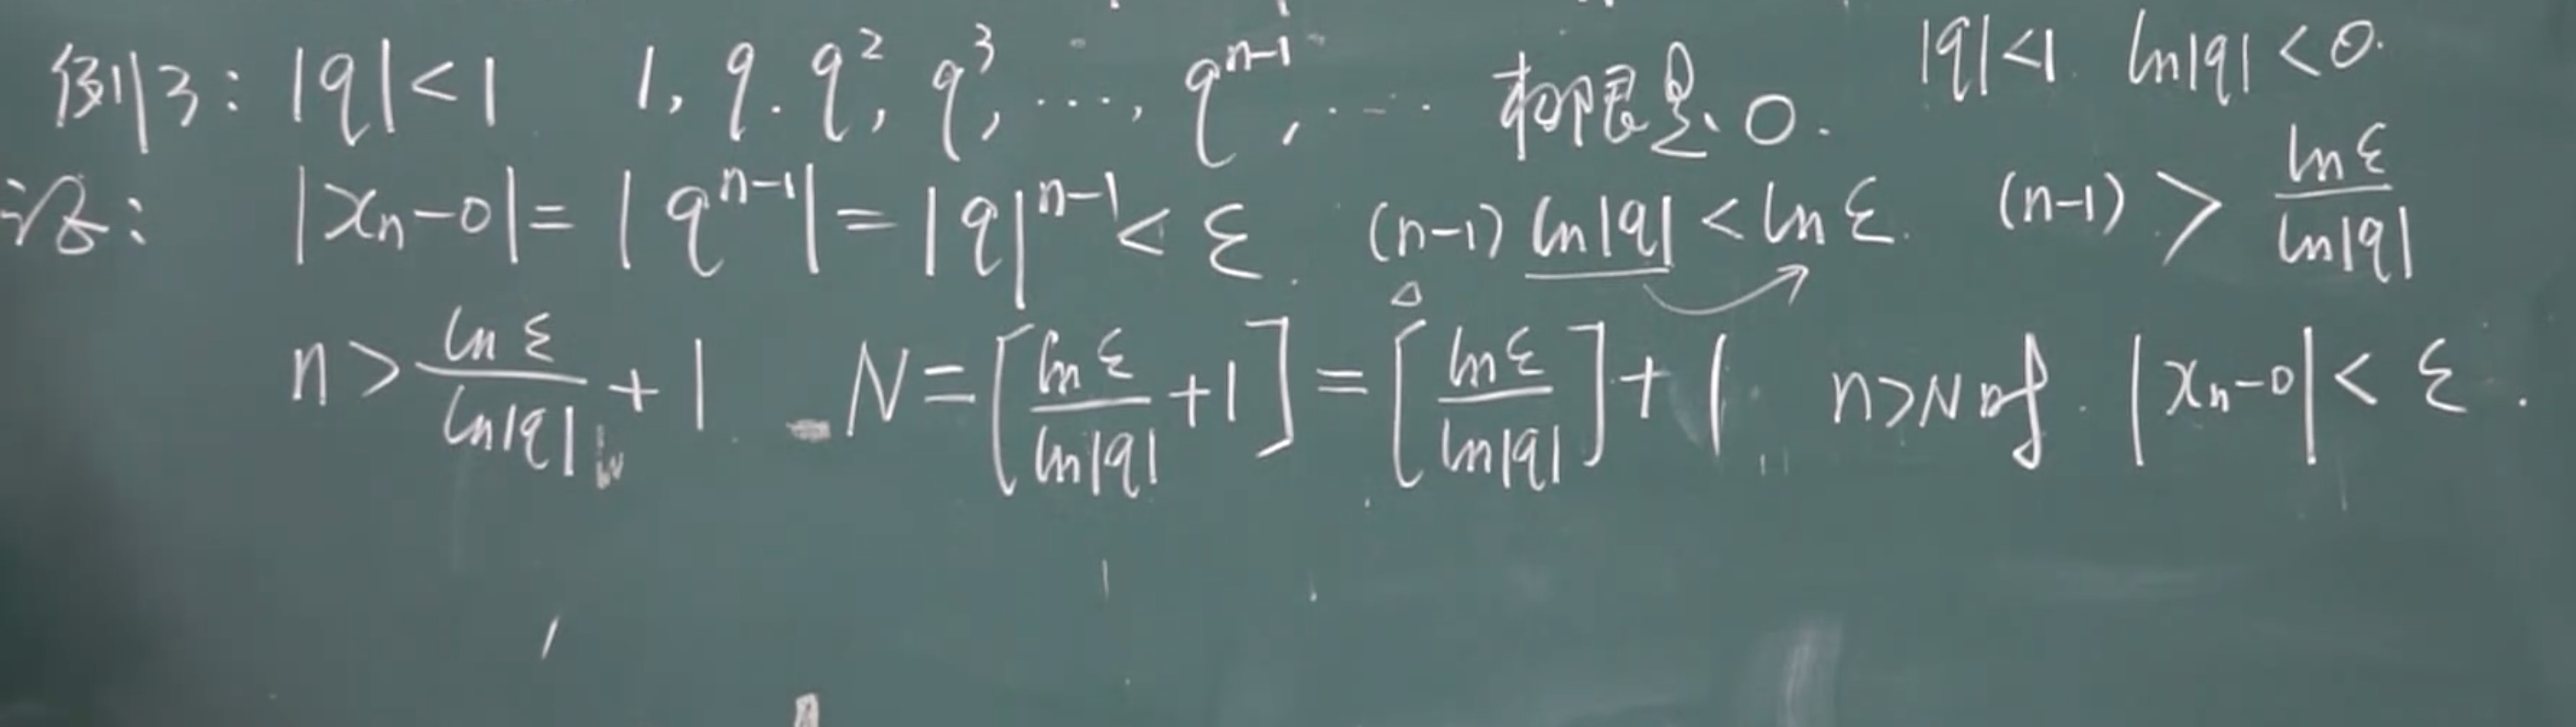 例3: |q|<1 1, q. q², q³, ···, qⁿ⁻¹, ··· 极限是 0. |q|<1. ln|q|<0.
证: |xₙ-0|=|qⁿ⁻¹|=|q|ⁿ⁻¹<ε. (n-1) ln|q|<ln ε. (n-1) > ln ε / ln|q|
n> ln ε / ln|q| + 1 N=[ln ε / ln|q| +1]=[ln ε / ln|q|]+1 n>N时. |xₙ-0|<ε.